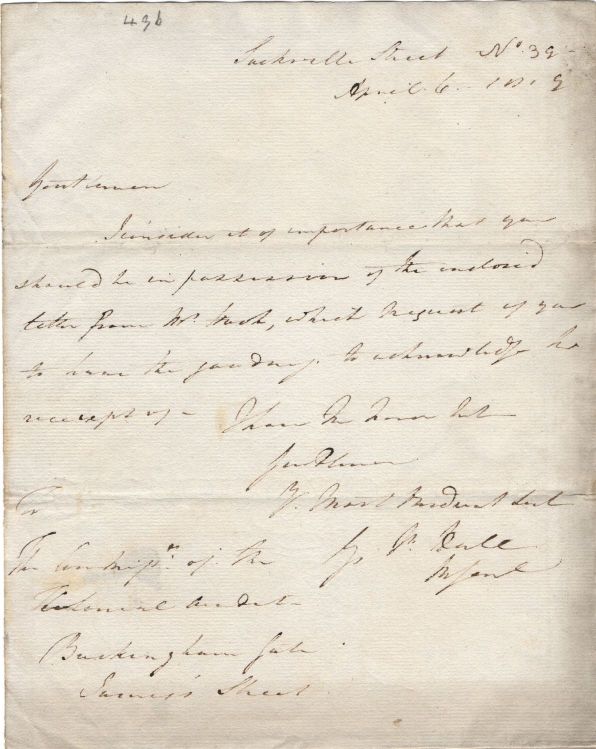 436
Sackville Street No. 39
April 6 1819
Gentlemen
I consider it of importance that you
should be in possession of the inclosed
letter from Mr. which request of you
to have the goodness to acknowledge the
receipt of
I have the honor to be
Gentlemen
Yr. Most Servt
To
The of the
Colonial Audit
Buckingham Gate
James's Street